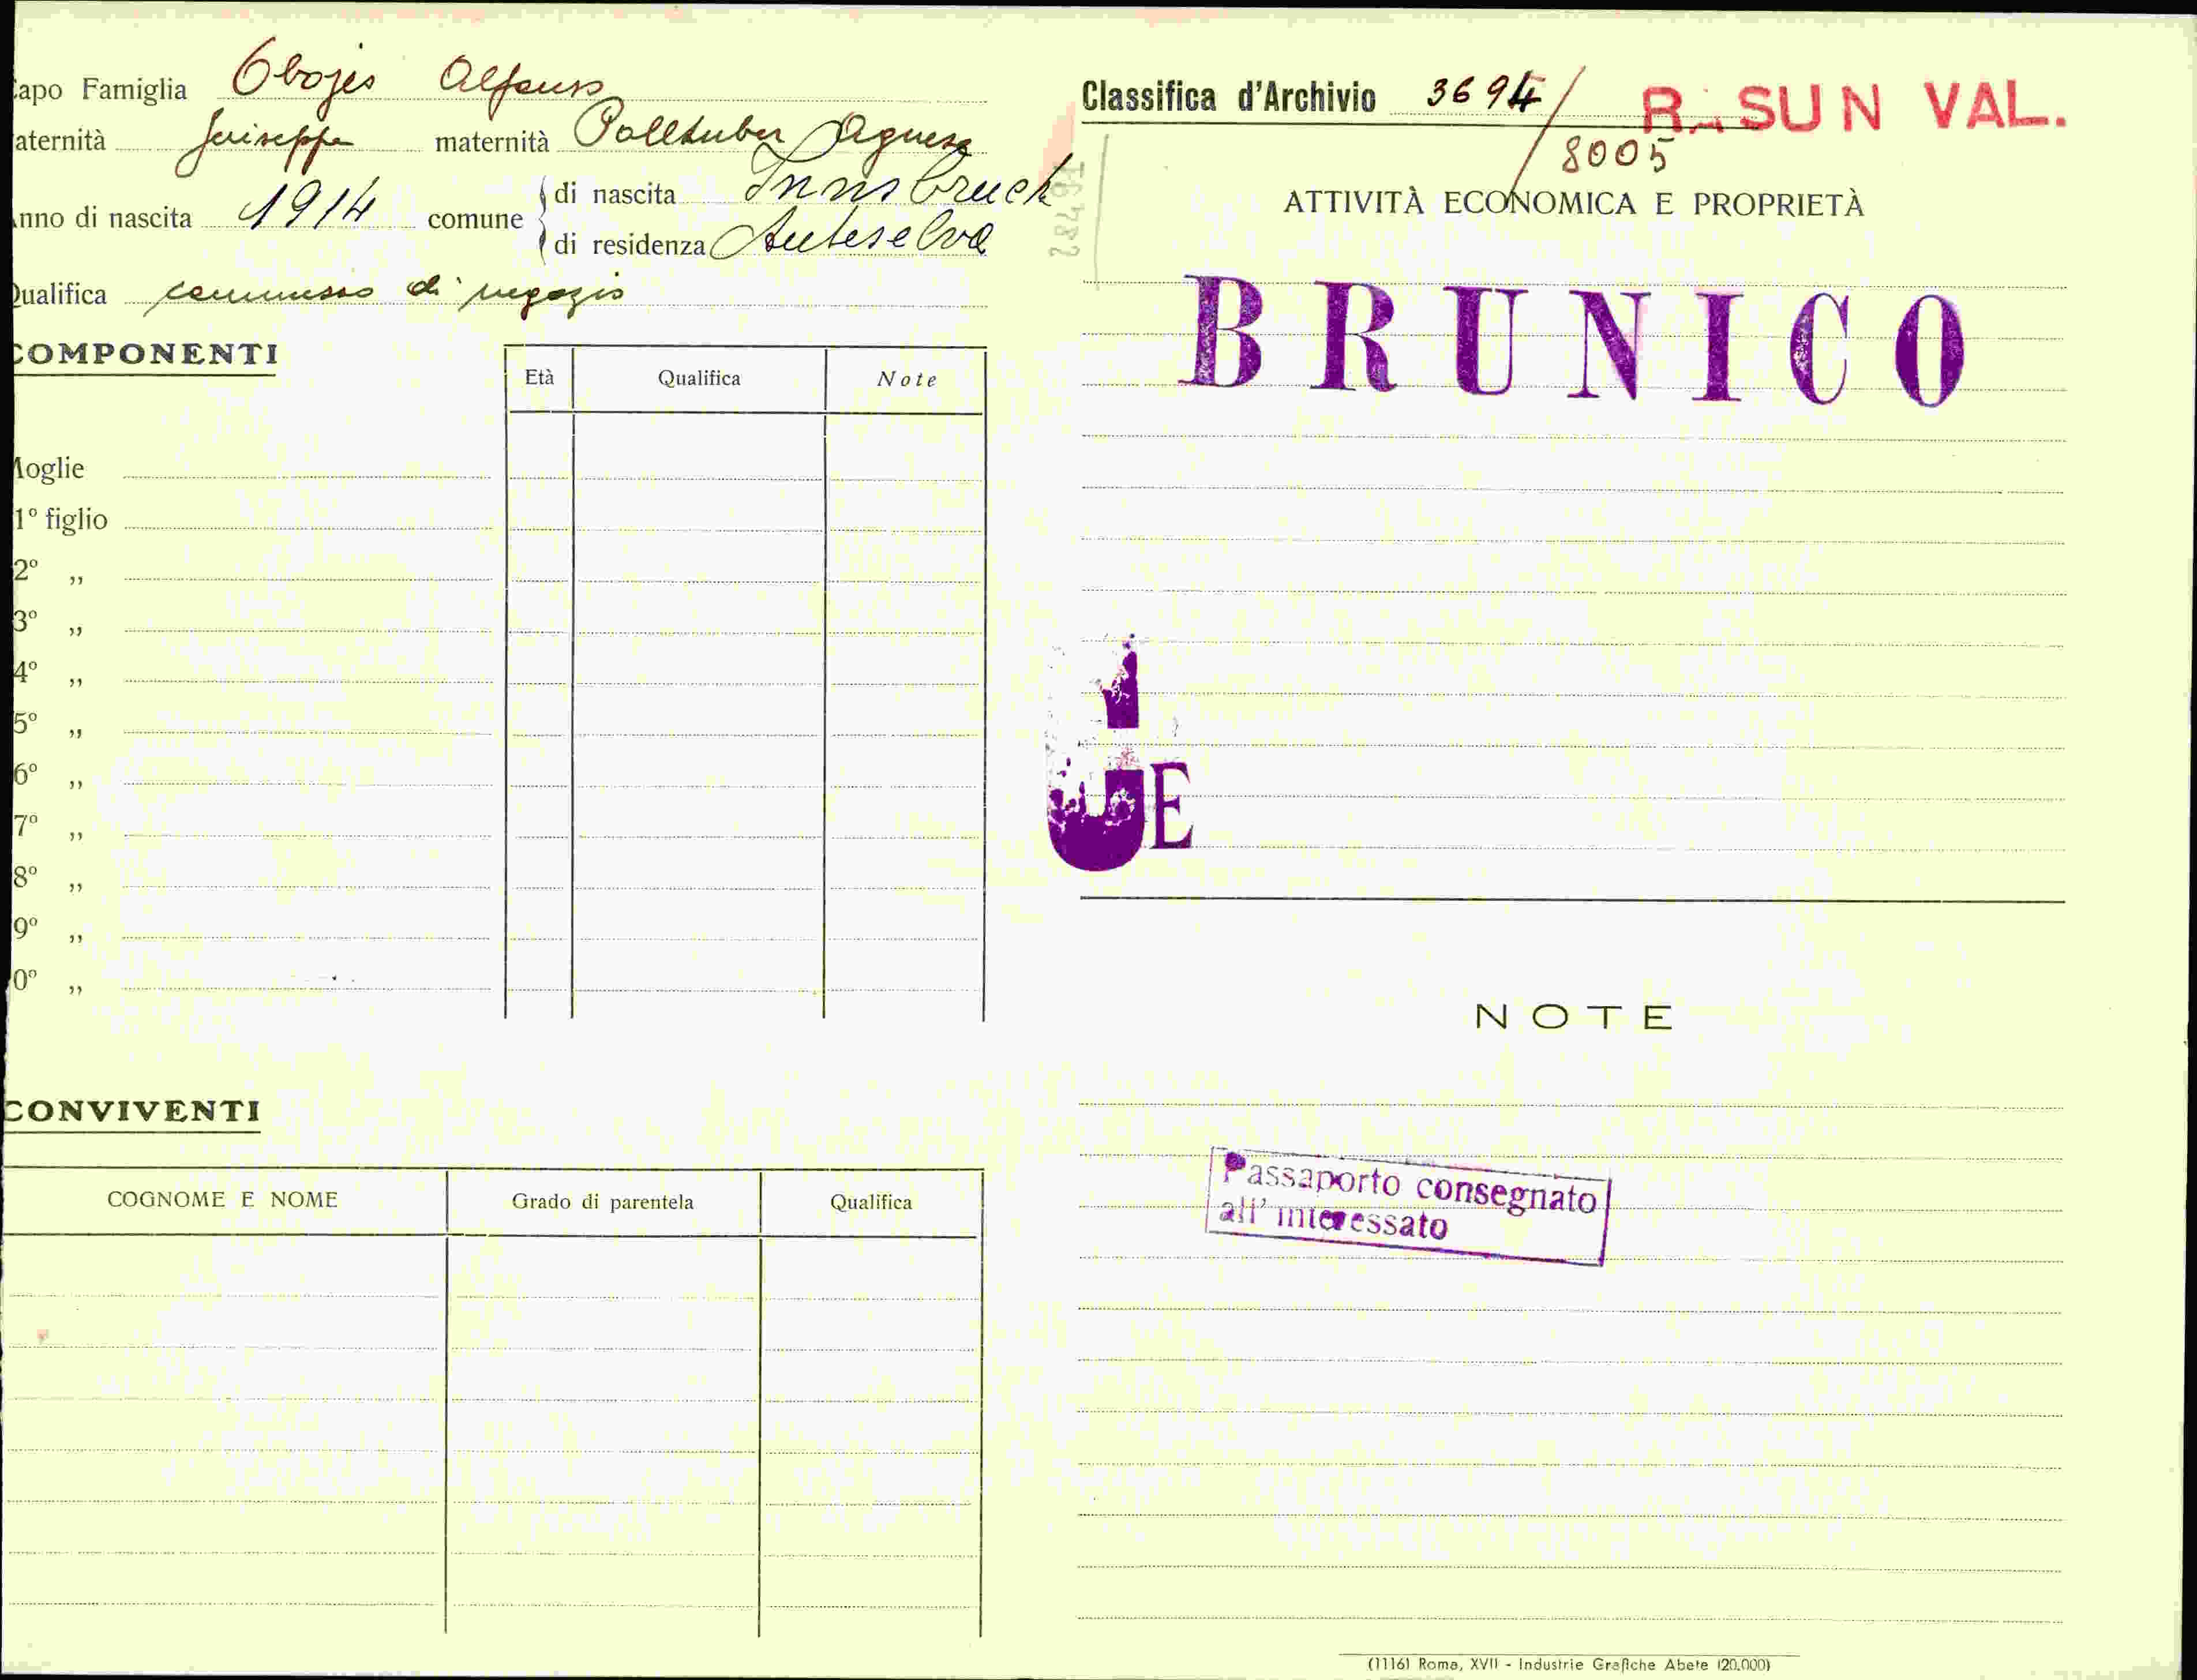 apo Famiglia Obojes Alfonso
aternità Giuseppe maternità Agnese
nno di nascita 1914 comune di nascita Innsbruck
di residenza Anterselva
ualifica commesso di negozio
COMPONENTI
Età Qualifica Note
oglie
1° figlio
2° „
3° „
4° „
5° „
6° „
7° „
8° „
9° „
0° „
CONVIVENTI
COGNOME E NOME Grado di parentela Qualifica
Classifica d'Archivio 3694/8005
R. SUN VAL.
28491
ATTIVITÀ ECONOMICA E PROPRIETÀ
BRUNICO
E
NOTE
Passaporto consegnato
all' interessato
(1116) Roma, XVII - Industrie Grafiche Abete (20.000)